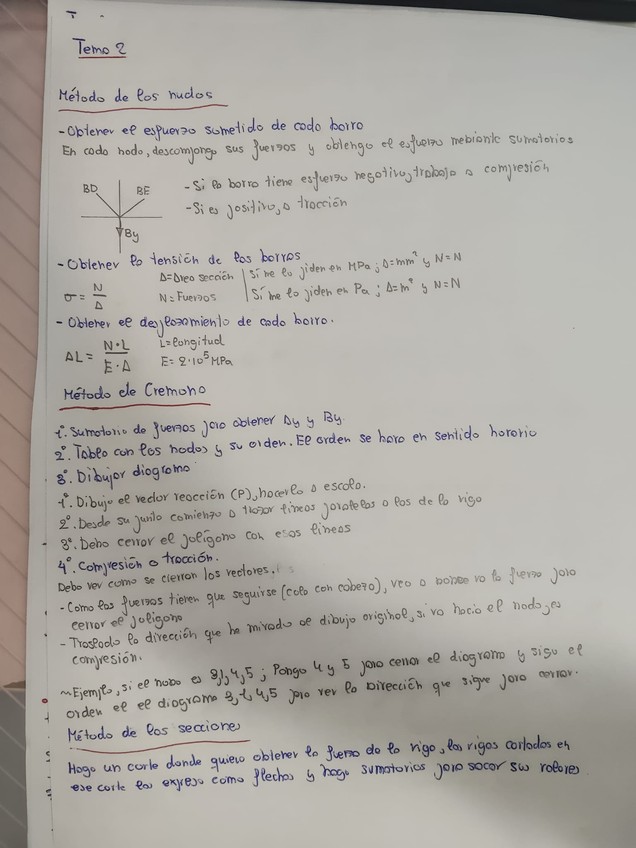 Tema 2
Método de los nudos
- Obtener el esfuerzo sometido de cada barra
En cada nodo, descompongo sus fuerzas y obtengo el esfuerzo mediante sumatorios
BD BE
By
- Si la barra tiene esfuerzo negativo, trabaja a compresión
- Si es positivo, a tracción
- Obtener la tensión de las barras
σ = N/A
A = Area sección
N = Fuerzas
Si me lo piden en MPa; A = mm² y N = N
Si me lo piden en Pa; A = m² y N = N
- Obtener el desplazamiento de cada barra.
ΔL = N·L / E·A
L = Longitud
E = 2·10⁵ MPa
Método de Cremona
1º. Sumatorio de fuerzas para obtener Ay y By.
2º. Tabla con los nodos y su orden. El orden se hara en sentido horario
3º. Dibujar diagrama
1º. Dibujo el vector reacción (P), hacerlo a escala.
2º. Desde su punto comienzo a trazar lineas paralelas a las de la viga
3º. Debo cerrar el polígono con esas líneas
4º. Compresión o tracción.
Debo ver como se cierran los vectores.
- Como las fuerzas tienen que seguirse (cola con cabeza), veo a donde va la fuerza para
cerrar el poligono
- Traslado la dirección que ha mirado al dibujo original, si va hacia el nodo, es
compresión.
~ Ejemplo, si el nodo es 3,1,4,5; Pongo 4 y 5 para cerrar el diagrama y sigo el
orden el el diagrama 3,1,4,5 para ver la dirección que sigue para cerrar.
Método de las secciones
Hago un corte donde quiero obtener la fuerza de la viga, las vigas cortadas en
ese corte las expreso como flechas y hago sumatorios para sacar sus valores.